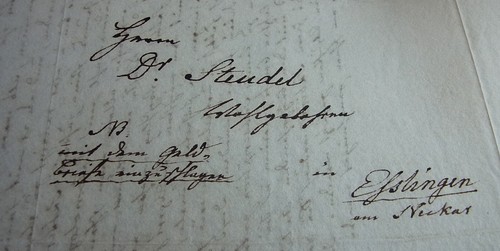 Herrn
Dr. Steudel
Wohlgebohren
NB.
mit dem Geld-
briefe einzuschlagen
in
Esslingen
am Neckar